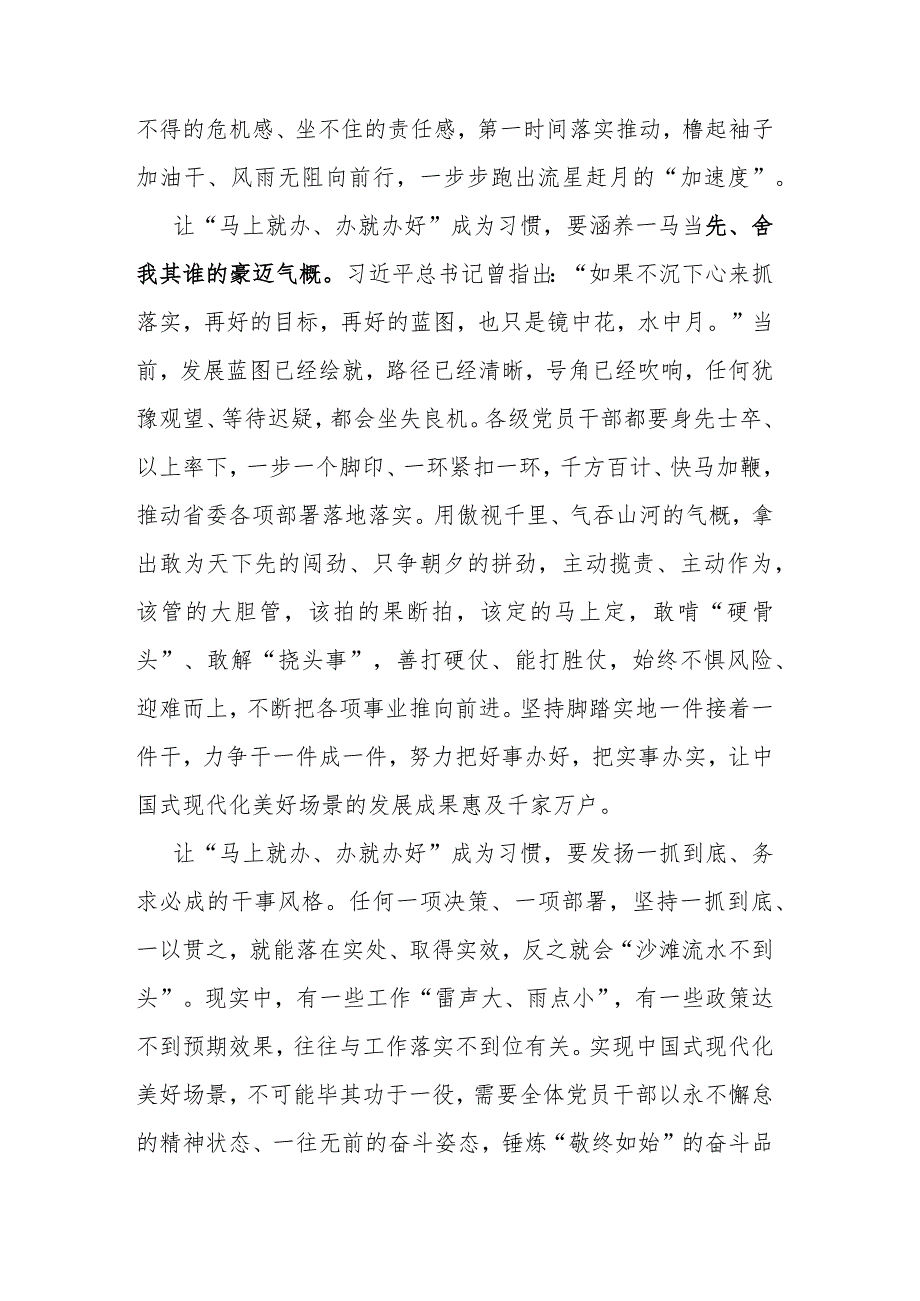 不得的危机感、坐不住的责任感，第一时间落实推动，撸起袖子
加油干、风雨无阻向前行，一步步跑出流星赶月的“加速度”。
让“马上就办、办就办好”成为习惯，要涵养一马当先、舍
我其谁的豪迈气概。习近平总书记曾指出：“如果不沉下心来抓
落实，再好的目标，再好的蓝图，也只是镜中花，水中月。”当
前，发展蓝图已经绘就，路径已经清晰，号角已经吹响，任何犹
豫观望、等待迟疑，都会坐失良机。各级党员干部都要身先士卒、
以上率下，一步一个脚印、一环紧扣一环，千方百计、快马加鞭，
推动省委各项部署落地落实。用傲视千里、气吞山河的气概，拿
出敢为天下先的闯劲、只争朝夕的拼劲，主动揽责、主动作为，
该管的大胆管，该拍的果断拍，该定的马上定，敢啃“硬骨
头”、敢解“挠头事”，善打硬仗、能打胜仗，始终不惧风险、
迎难而上，不断把各项事业推向前进。坚持脚踏实地一件接着一
件干，力争干一件成一件，努力把好事办好，把实事办实，让中
国式现代化美好场景的发展成果惠及千家万户。
让“马上就办、办就办好”成为习惯，要发扬一抓到底、务
求必成的干事风格。任何一项决策、一项部署，坚持一抓到底、
一以贯之，就能落在实处、取得实效，反之就会“沙滩流水不到
头”。现实中，有一些工作“雷声大、雨点小”，有一些政策达
不到预期效果，往往与工作落实不到位有关。实现中国式现代化
美好场景，不可能毕其功于一役，需要全体党员干部以永不懈怠
的精神状态、一往无前的奋斗姿态，锤炼“敬终如始”的奋斗品